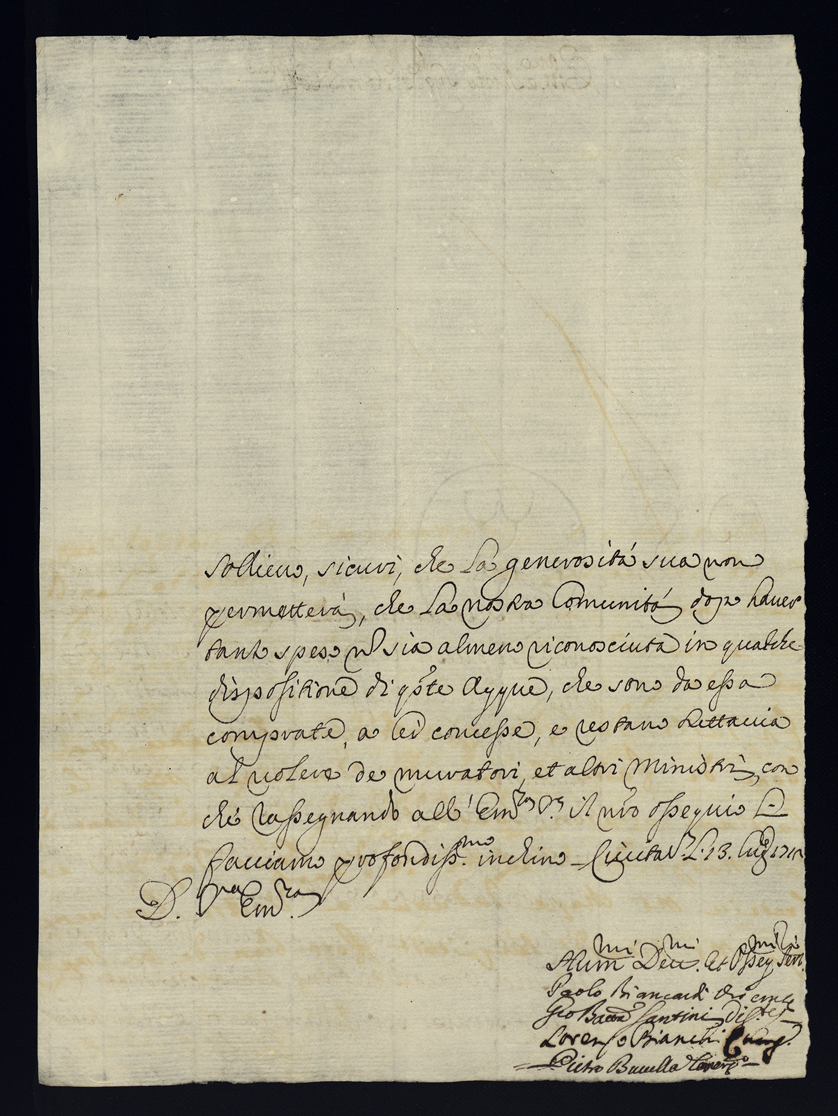 sollievo, sicuri, che la generosità sua non
permetterà, che la nostra Comunità dopo haver
tante spese nō sia almeno riconosciuta in qualche
dispositione di qste acque, che sono da essa
comprate, a lei concesse, e restano tuttavia
al volere de muratori, et altri Ministri, con
che rassegnando all' Emza Va il nro ossequio Le
facciamo profondissmo inchino Civitava 13 Lug
D. Vra Emza
Hummi Devmi et
Paolo Biancardi
Gio Batta Santini
Lorenzo Bianchi
Pietro Bucella